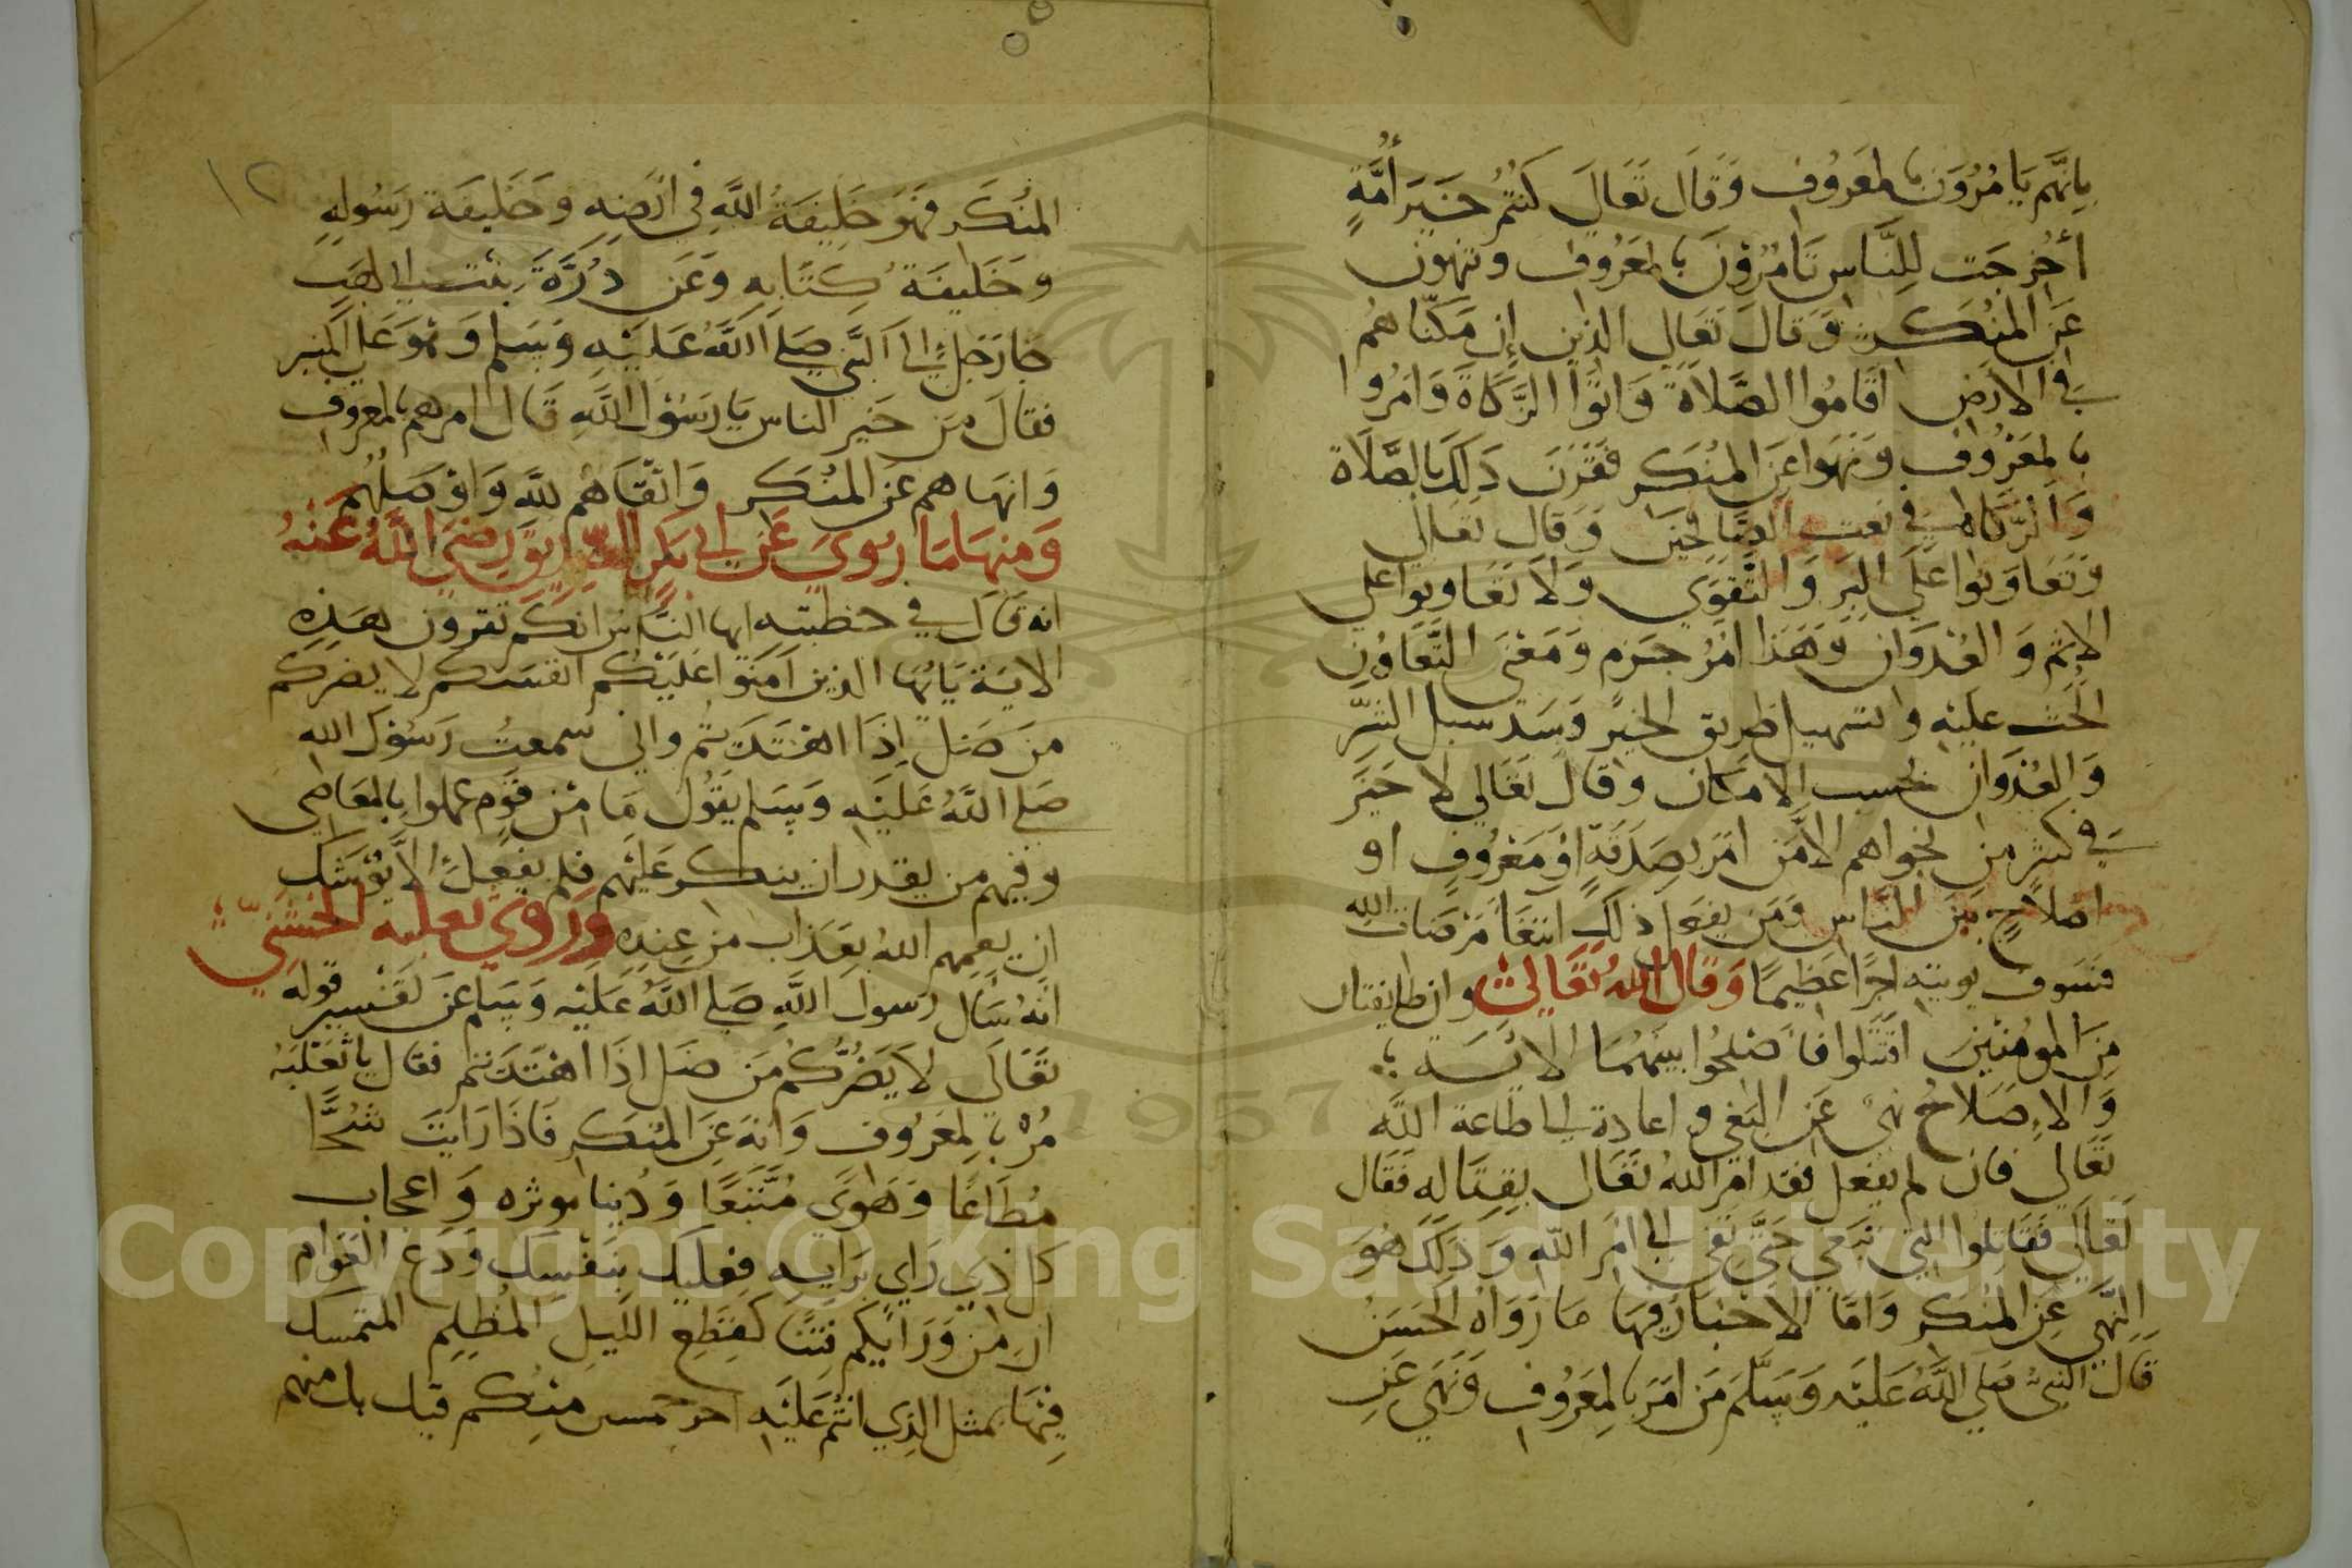 بانهم يامرون بالمعروف وقال تعالى كنتم خير أمة
أخرجت للناس تامرون بالمعروف وتنهون
عن المنكر وقال تعالى الذين إن مكناهم
في الارض اقاموا الصلاة واتوا الزكاة وامروا
بالمعروف ونهوا عن المنكر فقرن ذلك بالصلاة
والزكاة في نعت الصالحين وقال تعالى
وتعاونوا على البر والتقوى ولا تعاونوا على
الاثم والعدوان وهذا امر جزم ومعنى التعاون
الحث عليه وتسهيل طريق الخير وسد سبل الشر
والعدوان بحسب الامكان وقال تعالى لا خير
في كثير من نجواهم الا من امر بصدقة او معروف او
اصلاح بين الناس ومن يفعل ذلك ابتغا مرضات الله
فسوف يوتيه اجرا عظيما وقال الله تعالى وان طايفتان
من المومنين اقتتلوا فاصلحوا بينهما الاية
والاصلاح نهي عن البغي واعادة الى طاعة الله
تعالى فان لم يفعل فقد امر الله تعالى بقتاله فقال
تعالى فقاتلوا التي تبغي حتى تفي الى امر الله وذلك هو
النهي عن المنكر واما الاخبار فمنها ما رواه الحسن
قال النبي صلى الله عليه وسلم من امر بالمعروف ونهى عن
١٢
المنكر فهو خليفة الله في ارضه وخليفة رسوله
وخليفة كتابه وعن درة بنت ابي لهب
جا رجل الى النبي صلى الله عليه وسلم وهو على المنبر
فقال من خير الناس يا رسول الله قال امرهم بالمعروف
وانهاهم عن المنكر واتقاهم لله واوصلهم
ومنها ما روي عن ابي بكر الصديق رضي الله عنه
انه قال في خطبته ايها الناس انكم تقرون هذه
الاية يايها الذين امنوا عليكم انفسكم لا يضركم
من ضل إذا اهتديتم واني سمعت رسول الله
صلى الله عليه وسلم يقول ما من قوم عملوا بالمعاصي
وفيهم من يقدر ان ينكر عليهم فلم يفعل الا يوشك
ان يعمهم الله بعذاب من عنده وروي ثعلبه الخشني
انه سال رسول الله صلى الله عليه وسلم عن تفسير قوله
تعالى لا يضركم من ضل اذا اهتديتم فقال يا ثعلبه
مر بالمعروف وانه عن المنكر فاذا رايت شحا
مطاعا وهوى متبعا ودنيا موثره واعجاب
كل ذي راي برايه فعليك بنفسك ودع العوام
ان من ورايكم فتنا كقطع الليل المظلم المتمسك
فيها بمثل الذي انتم عليه اجر خمسين منكم قيل بل منهم